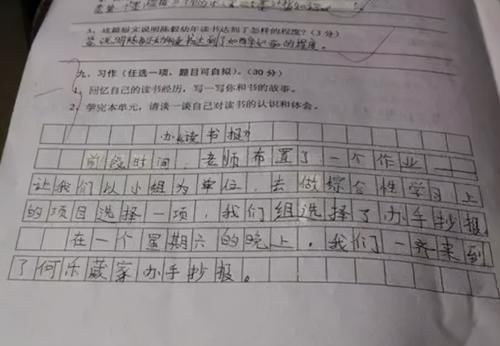 3、这篇短文说明陈毅幼年读书达到了怎样的程度？(3分)
答:说明陈毅幼年读书达到了如醉如痴的程度。
九、习作(任选一项、题目可自拟)。(30分)
1、回忆自己的读书经历，写一写你和书的故事。
2、学完本单元，请谈一谈自己对读书的认识和体会。
办《读书报》
前段时间，老师布置了一个作业
让我们以小组为单位，去做综合性学习上
的项目选择一项，我们组选择了办手抄报。
在一个星期六的晚上，我们一齐来到
了何乐葳家办手抄报。